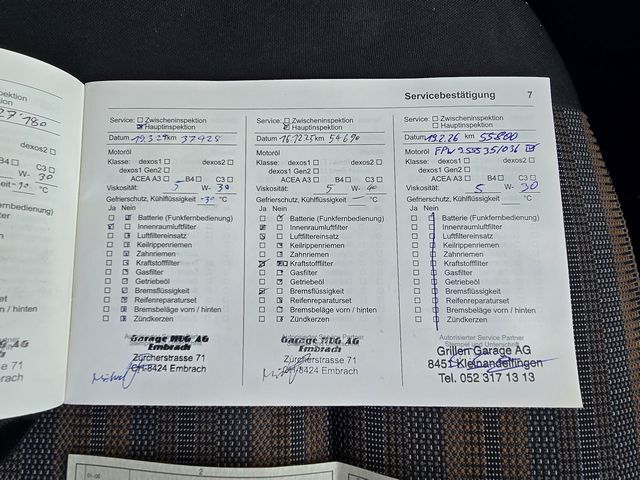 27'180
30
Servicebestätigung 7
Service: Zwischeninspektion
Hauptinspektion
Datum 19.3.24 km 37428
Motoröl
Klasse: dexos1 dexos2
dexos1 Gen2
ACEA A3 B4 C3
Viskosität: 5 W- 30
Gefrierschutz, Kühlflüssigkeit -30 °C
Ja Nein
Batterie (Funkfernbedienung)
Innenraumluftfilter
Luftfiltereinsatz
Keilrippenriemen
Zahnriemen
Kraftstofffilter
Gasfilter
Getriebeöl
Bremsflüssigkeit
Reifenreparaturset
Bremsbeläge vorn / hinten
Zündkerzen
Garage HUG AG
Embrach
Zürcherstrasse 71
CH-8424 Embrach
Service: Zwischeninspektion
Hauptinspektion
Datum 16.12.25 km 54690
Motoröl
Klasse: dexos1 dexos2
dexos1 Gen2
ACEA A3 B4 C3
Viskosität: 5 W- 40
Gefrierschutz, Kühlflüssigkeit — °C
Ja Nein
Batterie (Funkfernbedienung)
Innenraumluftfilter
Luftfiltereinsatz
Keilrippenriemen
Zahnriemen
Kraftstofffilter
Gasfilter
Getriebeöl
Bremsflüssigkeit
Reifenreparaturset
Bremsbeläge vorn / hinten
Zündkerzen
Garage HUG AG
Embrach
Zürcherstrasse 71
CH-8424 Embrach
Service: Zwischeninspektion
Hauptinspektion
Datum 19.2.26 km 55800
Motoröl
Klasse: dexos1 dexos2
dexos1 Gen2
ACEA A3 B4 C3
Viskosität: 5 W- 30
Gefrierschutz, Kühlflüssigkeit °C
Ja Nein
Batterie (Funkfernbedienung)
Innenraumluftfilter
Luftfiltereinsatz
Keilrippenriemen
Zahnriemen
Kraftstofffilter
Gasfilter
Getriebeöl
Bremsflüssigkeit
Reifenreparaturset
Bremsbeläge vorn / hinten
Zündkerzen
Autorisierter Service Partner
Stempel und Unterschrift
Grillen Garage AG
8451 Kleinandelfingen
Tel. 052 317 13 13